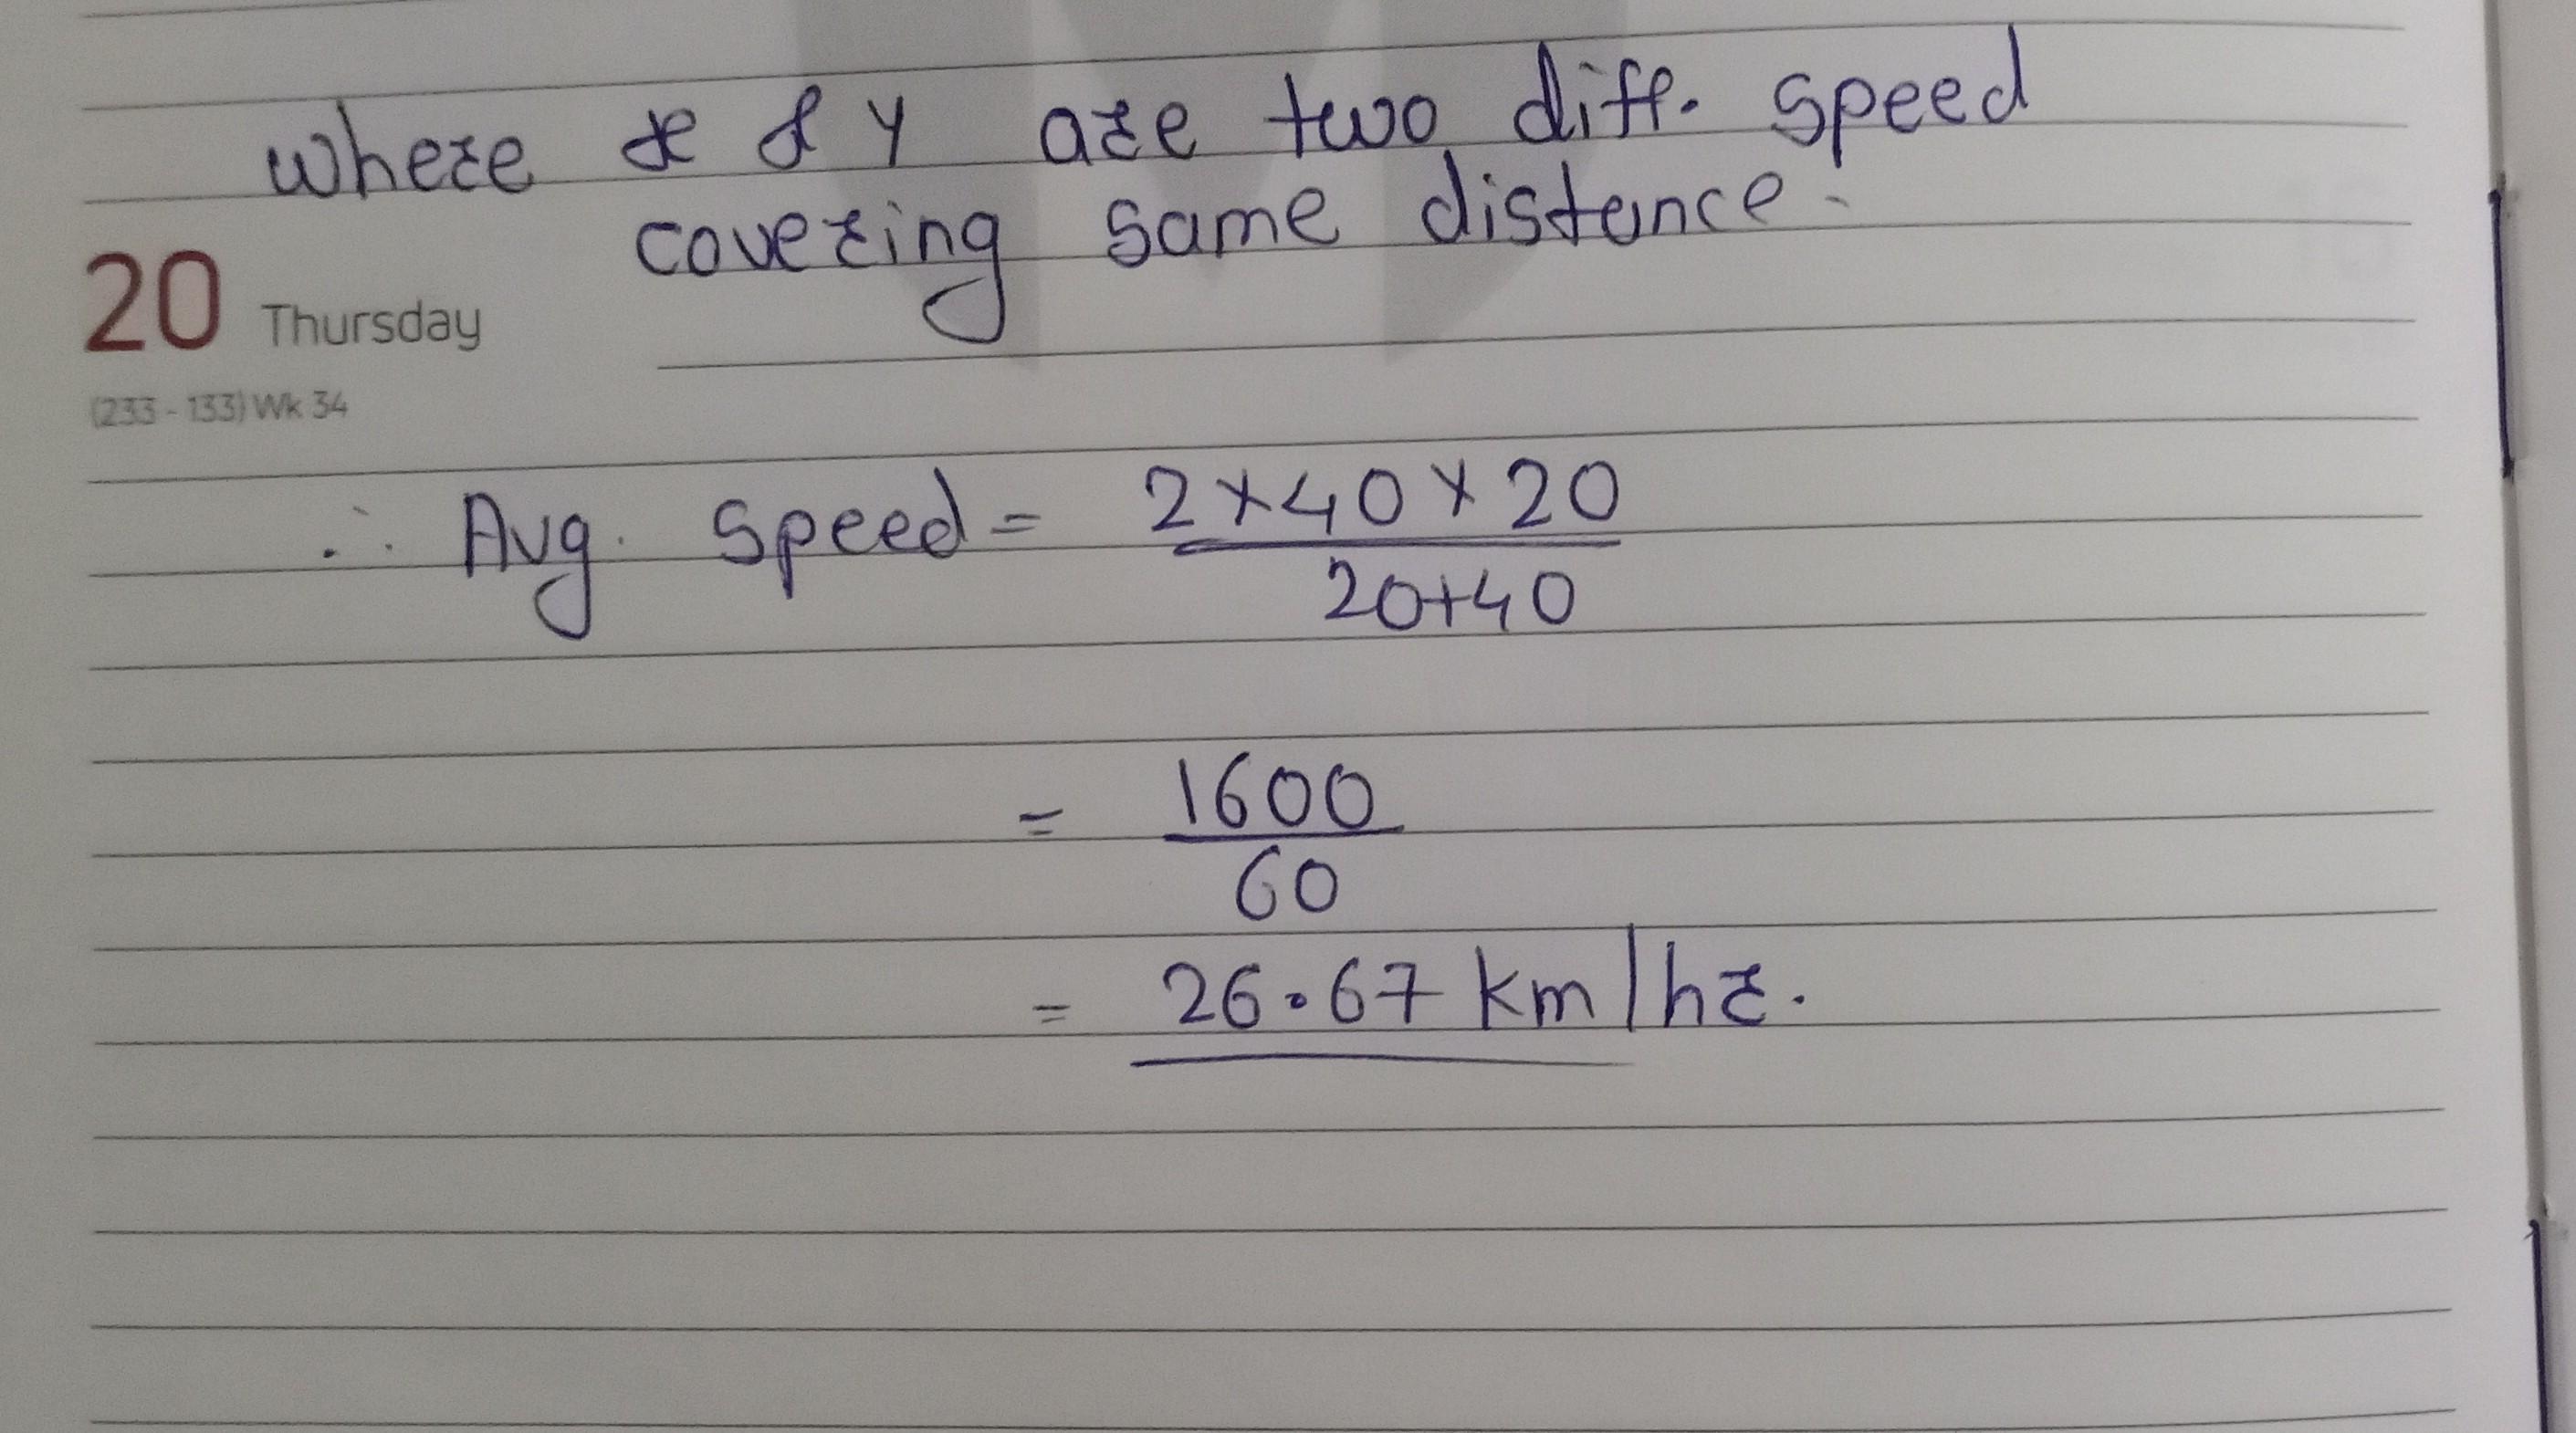 where x & y are two diff. speed
covering same distance.
20 Thursday
(233 - 133) Wk 34
∴ Avg. speed = 2×40×20
20+40
= 1600
60
= 26.67 km/hr.